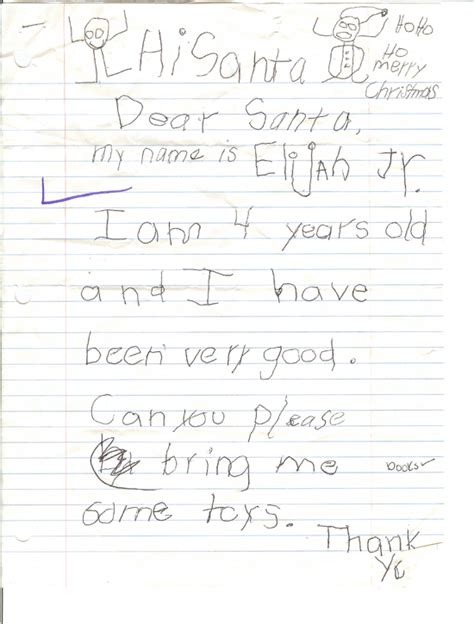 Hi Santa
HoHo
Ho
merry
Christmas
Dear Santa,
my name is Elijah Jr.
I am 4 years old
and I have
been very good.
Can you please
bring me
books
some toys.
Thank
Yo